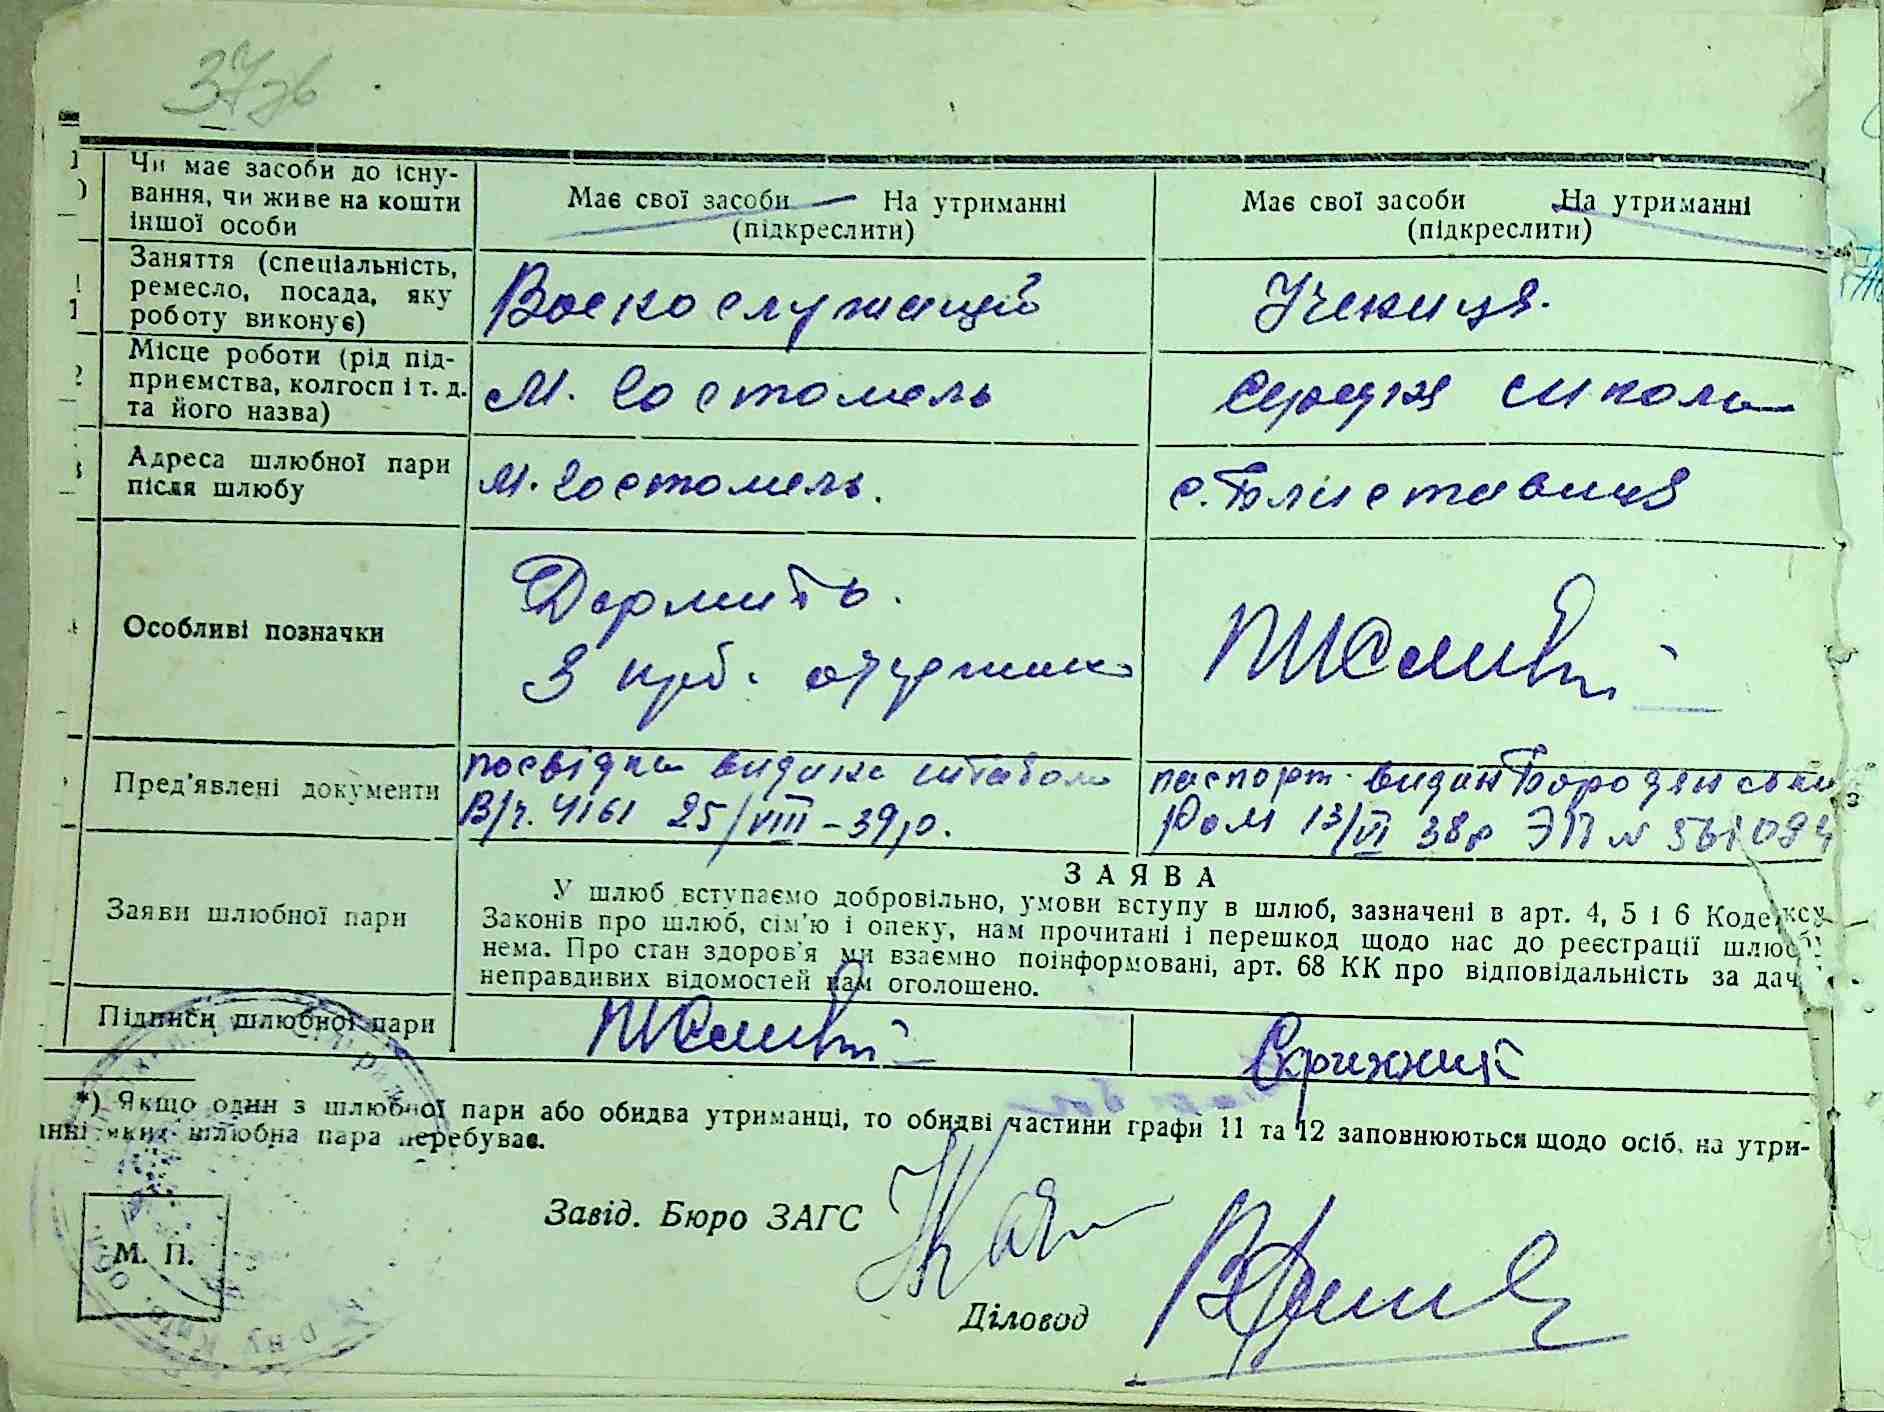 37зв
10
Чи має засоби до існу-
вання, чи живе на кошти
іншої особи
Має свої засоби На утриманні
(підкреслити)
Має свої засоби На утриманні
(підкреслити)
Заняття (спеціальність,
ремесло, посада, яку
роботу виконує)
Воєнослужащий
Учениця.
Місце роботи (рід під-
приємства, колгосп і т. д.
та його назва)
М. Гостомель
Середня школа
Адреса шлюбної пари
після шлюбу
м. Гостомель.
с. Блиставиця
Особливі позначки
З крб. одержано
Пред'явлені документи
посвідка видана штабом
В/ч. 4161 25/VIII – 39 р.
паспорт видан Бородянськи
РОМ 13/VI 38р ЭП №
Заяви шлюбної пари
ЗАЯВА
У шлюб вступаємо добровільно, умови вступу в шлюб, зазначені в арт. 4, 5 і 6 Кодексу
Законів про шлюб, сім'ю і опеку, нам прочитані і перешкод щодо нас до реєстрації шлюбу
нема. Про стан здоров'я ми взаємно поінформовані, арт. 68 КК про відповідальність за дач
неправдивих відомостей нам оголошено.
Підписи шлюбної пари
Скрижник
*) Якщо один з шлюбної пари або обидва утриманці, то обидві частини графи 11 та 12 заповнюються щодо осіб, на утри-
анні яких шлюбна пара перебуває.
Завід. Бюро ЗАГС
М. П.
Діловод